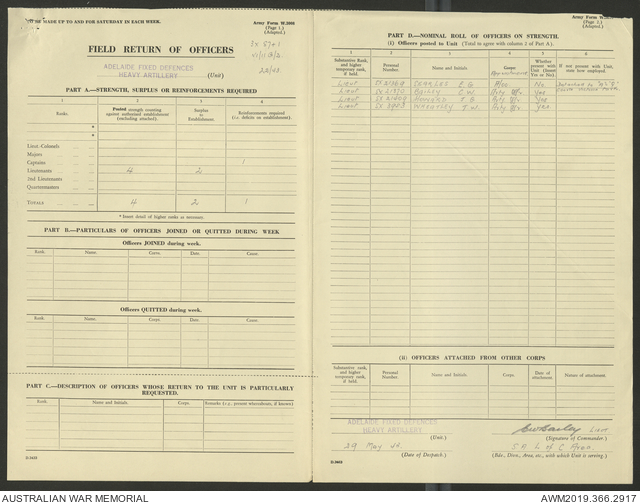 TO BE MADE UP TO AND FOR SATURDAY IN EACH WEEK.
Army Form W.3008
(Page 1.)
(Adapted.)
FIELD RETURN OF OFFICERS
ADELAIDE FIXED DEFENCES
HEAVY ARTILLERY
(Unit)
PART A.—STRENGTH, SURPLUS OR REINFORCEMENTS REQUIRED
1 2 3 4
Ranks. Posted strength counting against authorised establishment (excluding attached). Surplus to Establishment. Reinforcements required (i.e. deficits on establishment).
Lieut.-Colonels
Majors
Captains 1
Lieutenants 4 2
2nd Lieutenants
Quartermasters
TOTALS 4 2 1
* Insert detail of higher ranks as necessary.
PART B.—PARTICULARS OF OFFICERS JOINED OR QUITTED DURING WEEK
Officers JOINED during week.
Rank. Name. Corps. Date. Cause.
Officers QUITTED during week.
Rank. Name. Corps. Date. Cause.
PART C.—DESCRIPTION OF OFFICERS WHOSE RETURN TO THE UNIT IS PARTICULARLY REQUESTED.
Rank. Name and Initials. Corps. Remarks (i.e., present whereabouts, if known)
(Page 2.)
(Adapted.)
PART D.—NOMINAL ROLL OF OFFICERS ON STRENGTH.
(i) Officers posted to Unit (Total to agree with column 2 of Part A).
1 2 3 4 5 6
Substantive Rank, and higher temporary rank, if held. Personal Number. Name and Initials. Corps Whether present with Unit (Insert Yes or No). If not present with Unit, state how employed.
Lieut No
Lieut Bailey C W Yes
Lieut Yes
Lieut Yes
(ii) OFFICERS ATTACHED FROM OTHER CORPS
Substantive rank, and higher temporary rank, if held. Personal Number. Name and Initials. Corps. Date of attachment. Nature of attachment.
ADELAIDE FIXED DEFENCES
HEAVY ARTILLERY
(Unit.)
CW Bailey Lieut
(Signature of Commander.)
29 May 44.
(Date of Despatch.)
S A L of C Area.
(Bde., Div., Area, etc., with which Unit is serving.)
AUSTRALIAN WAR MEMORIAL
AWM2019.366.2917